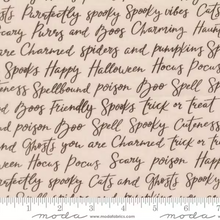 Ghosts Purrfectly spooky Spooky vibes Cats
Scary Purrs and Boos Charming Haun
are Charmed spiders and pumpkins Sp
Spooks Happy Halloween Hocus Pocus
eness Spellbound poison Boo Spell Sp
d Boos Friendly Spooks trick or treat
nd poison Boo Spell Spooky Cuteness
nd Ghosts you are Charmed trick or t
ween Hocus Pocus Scary poison Happ
rfectly spooky Cats and Ghosts Spooky
moda www.modafabrics.com moda